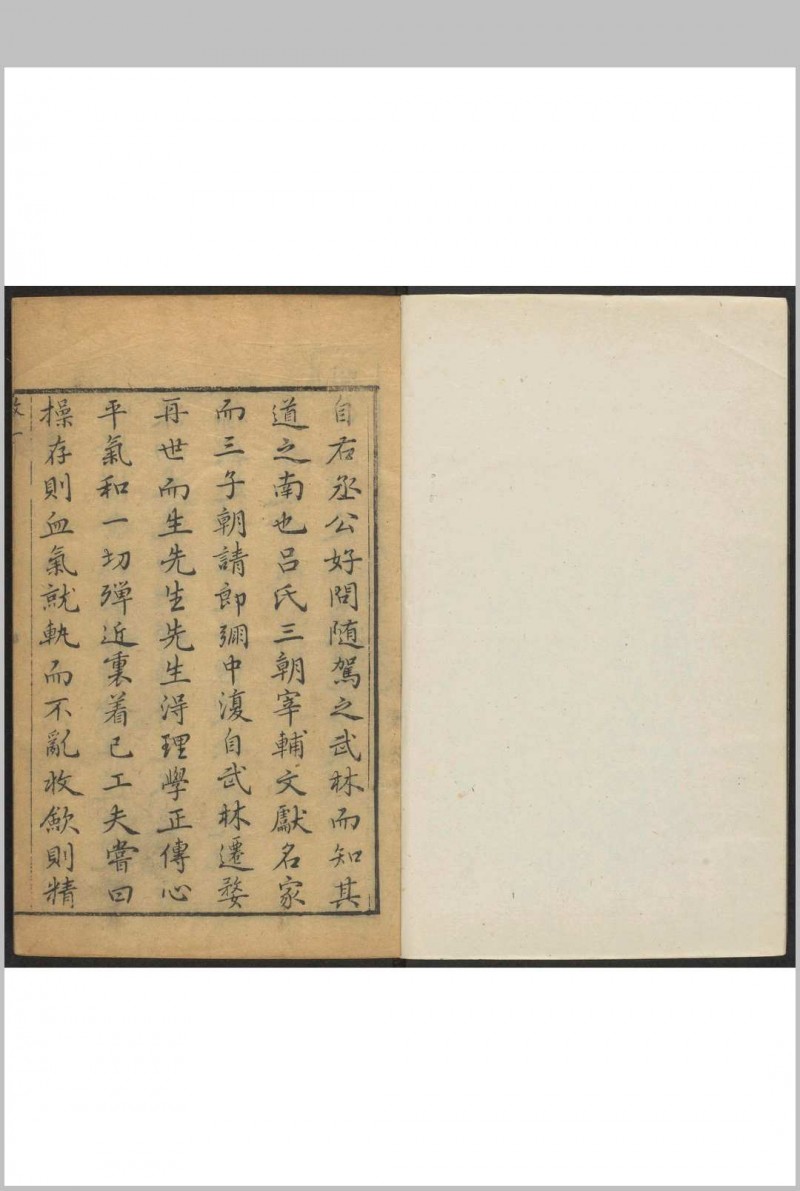 自右丞公好問随駕之武林而知其
道之南也呂氏三朝宰輔文獻名家
而三子朝請郎弸中復自武林遷婺
再世而生先生先生得理學正傳心
平氣和一切殫近裏着已工夫嘗曰
操存則血氣就䡄而不亂收斂則精